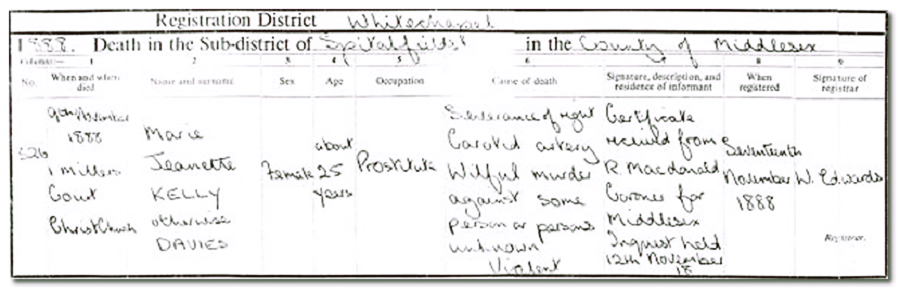 Registration District Whitechapel
1888. Death in the Sub-district of Spitalfields in the County of Middlesex
Columns:— 1 2 3 4 5 6 7 8 9
No. When and where died Name and surname Sex Age Occupation Cause of death Signature, description, and residence of informant When registered Signature of registrar
326
9th November
1888
1 Millers
Court
Christchurch
Marie
Jeanette
KELLY
otherwise
DAVIES
Female
about
25
years
Prostitute
Severance of right
Carotid artery
Wilful murder
against some
person or persons
unknown
Violent
Certificate
received from
R. Macdonald
Coroner for
Middlesex
Inquest held
12th November
18
Seventeenth
November
1888
W. Edwards
Registrar.